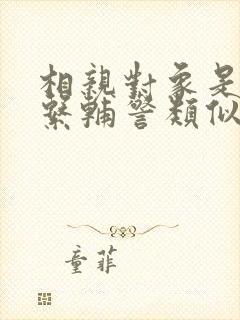 相親對象是
緊輔警類似
童菲